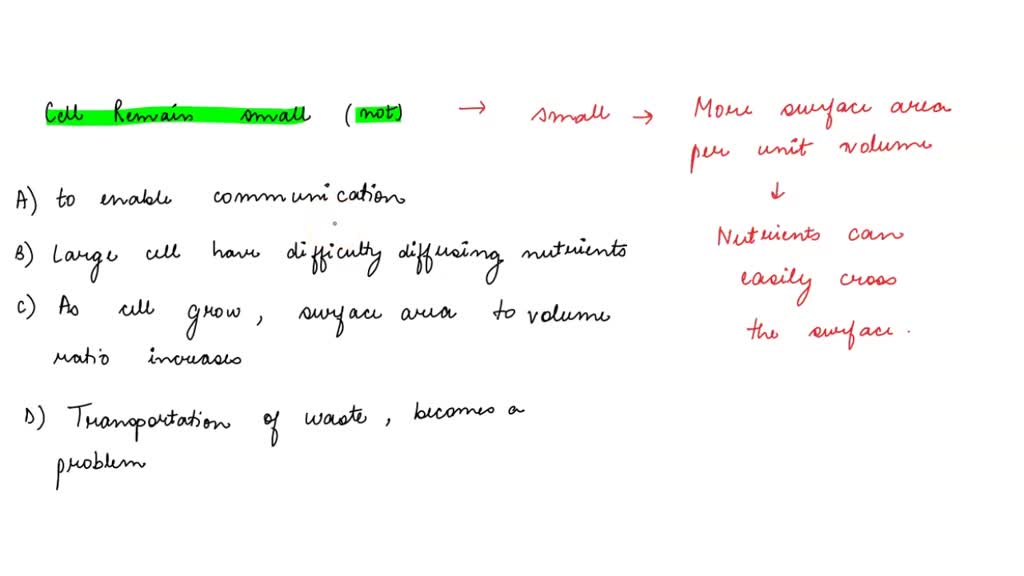 Cell Remain small (not) → small → More surface area
per unit volume
↓
A) to enable communication
Nutrients can
B) Large cell have difficulty diffusing nutrients
easily cross
C) As cell grow, surface area to volume
the surface.
ratio increases
D) Transportation of waste, becomes a
problem